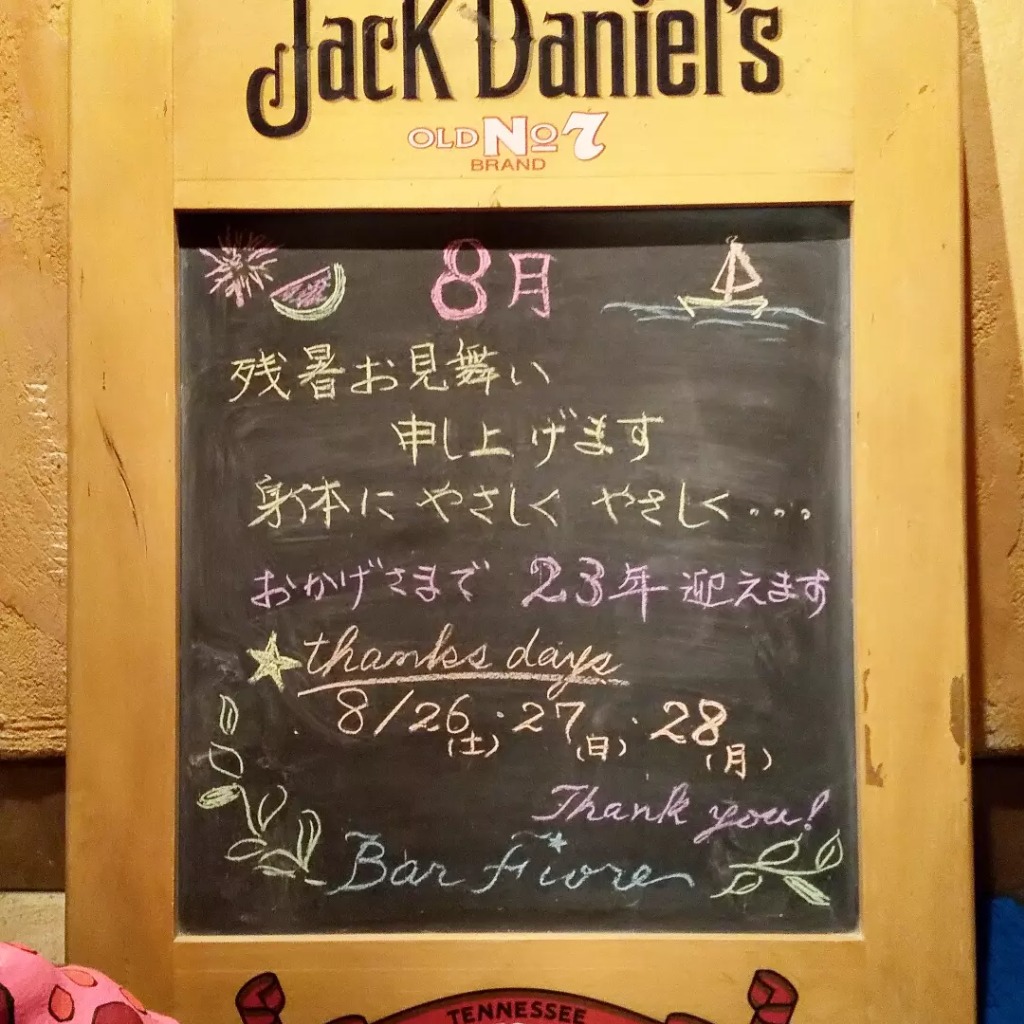 Jack Daniel's
OLD No 7
BRAND
8月
残暑お見舞い
申し上げます
身体に やさしく やさしく・・・
おかげさまで 23年 迎えます
thanks days
8/26(土)・27(日)・28(月)
Thank you!
Bar Fiore
TENNESSEE